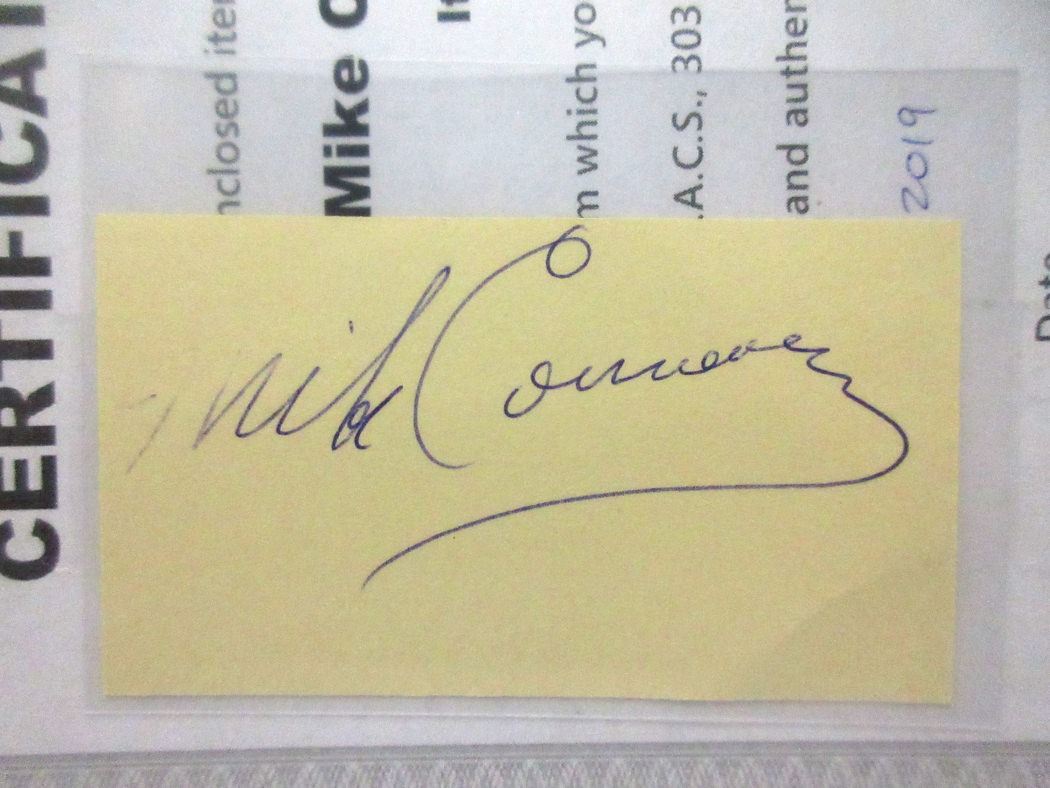 CERTIFICAT
nclosed iter
Mike C
It
m which yo
.A.C.S., 303
and authen
2019
Date
Mike Connors